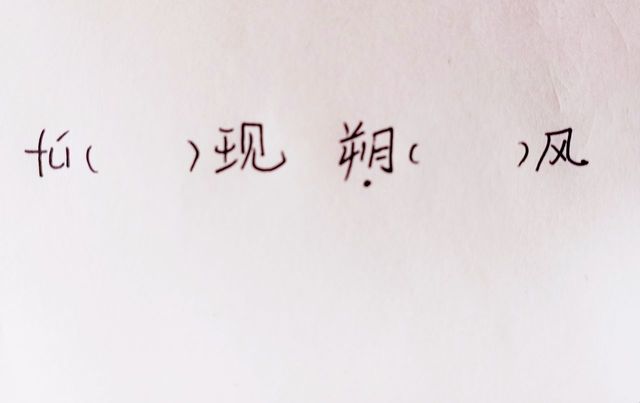 tú( )现 朔( )风